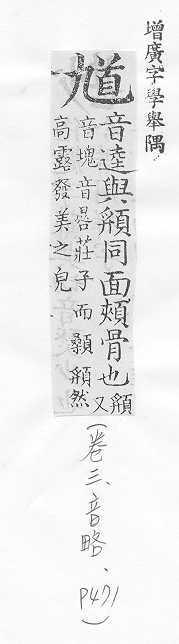 增廣字學舉隅
馗
音逵與頯同面頰骨也又頯
音塊音晷莊子而顙頯然
高露發美之皃
(卷三、音略、P471)